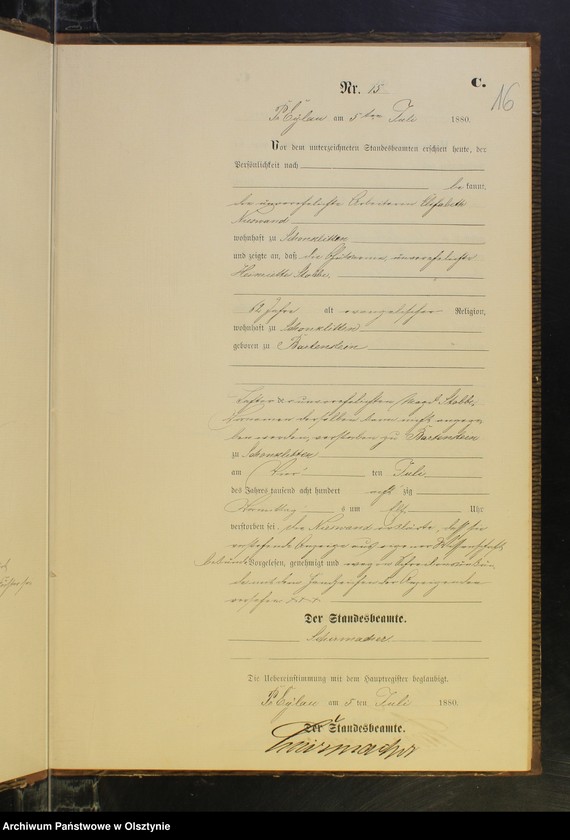 Nr. 15
C.
16
Pr. Eylau am 5ten Juli 1880.
Vor dem unterzeichneten Standesbeamten erschien heute, der
Persönlichkeit nach
bekannt,
die unverehelichte Arbeiterin Elisabeth
wohnhaft zu Schönklitten
und zeigte an, daß die unverehelichte
Henriette Stobbe,
62 Jahre alt evangelischer Religion,
wohnhaft zu Schönklitten
geboren zu Bartenstein
Tochter der unverehelichten Magd Stobbe,
Vornamen derselben kann nicht angege-
ben werden, verstorben zu
zu Schönklitten
am vier ten Juli
des Jahres tausend acht hundert achtzig
Vormittags um elf Uhr
verstorben sei. Die erklärte, daß sie
vorstehende Anzeige aus eigener Wissenschaft
Vorgelesen, genehmigt und wegen Schreibensunkun-
de mit den Handzeichen der Anzeigenden
versehen + + +
Der Standesbeamte.
Schirmacher
Die Uebereinstimmung mit dem Hauptregister beglaubigt.
Pr. Eylau am 5ten Juli 1880.
Der Standesbeamte.
Schirmacher
Archiwum Państwowe w Olsztynie